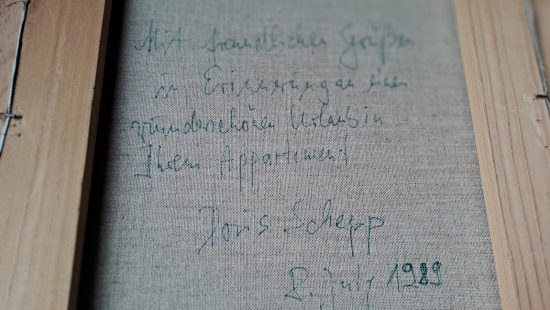 Mit freundlichen Grüßen
in Erinnerung an einen
wunderschönen Urlaub in
Ihrem Appartement
Doris Schepp
8. July 1989